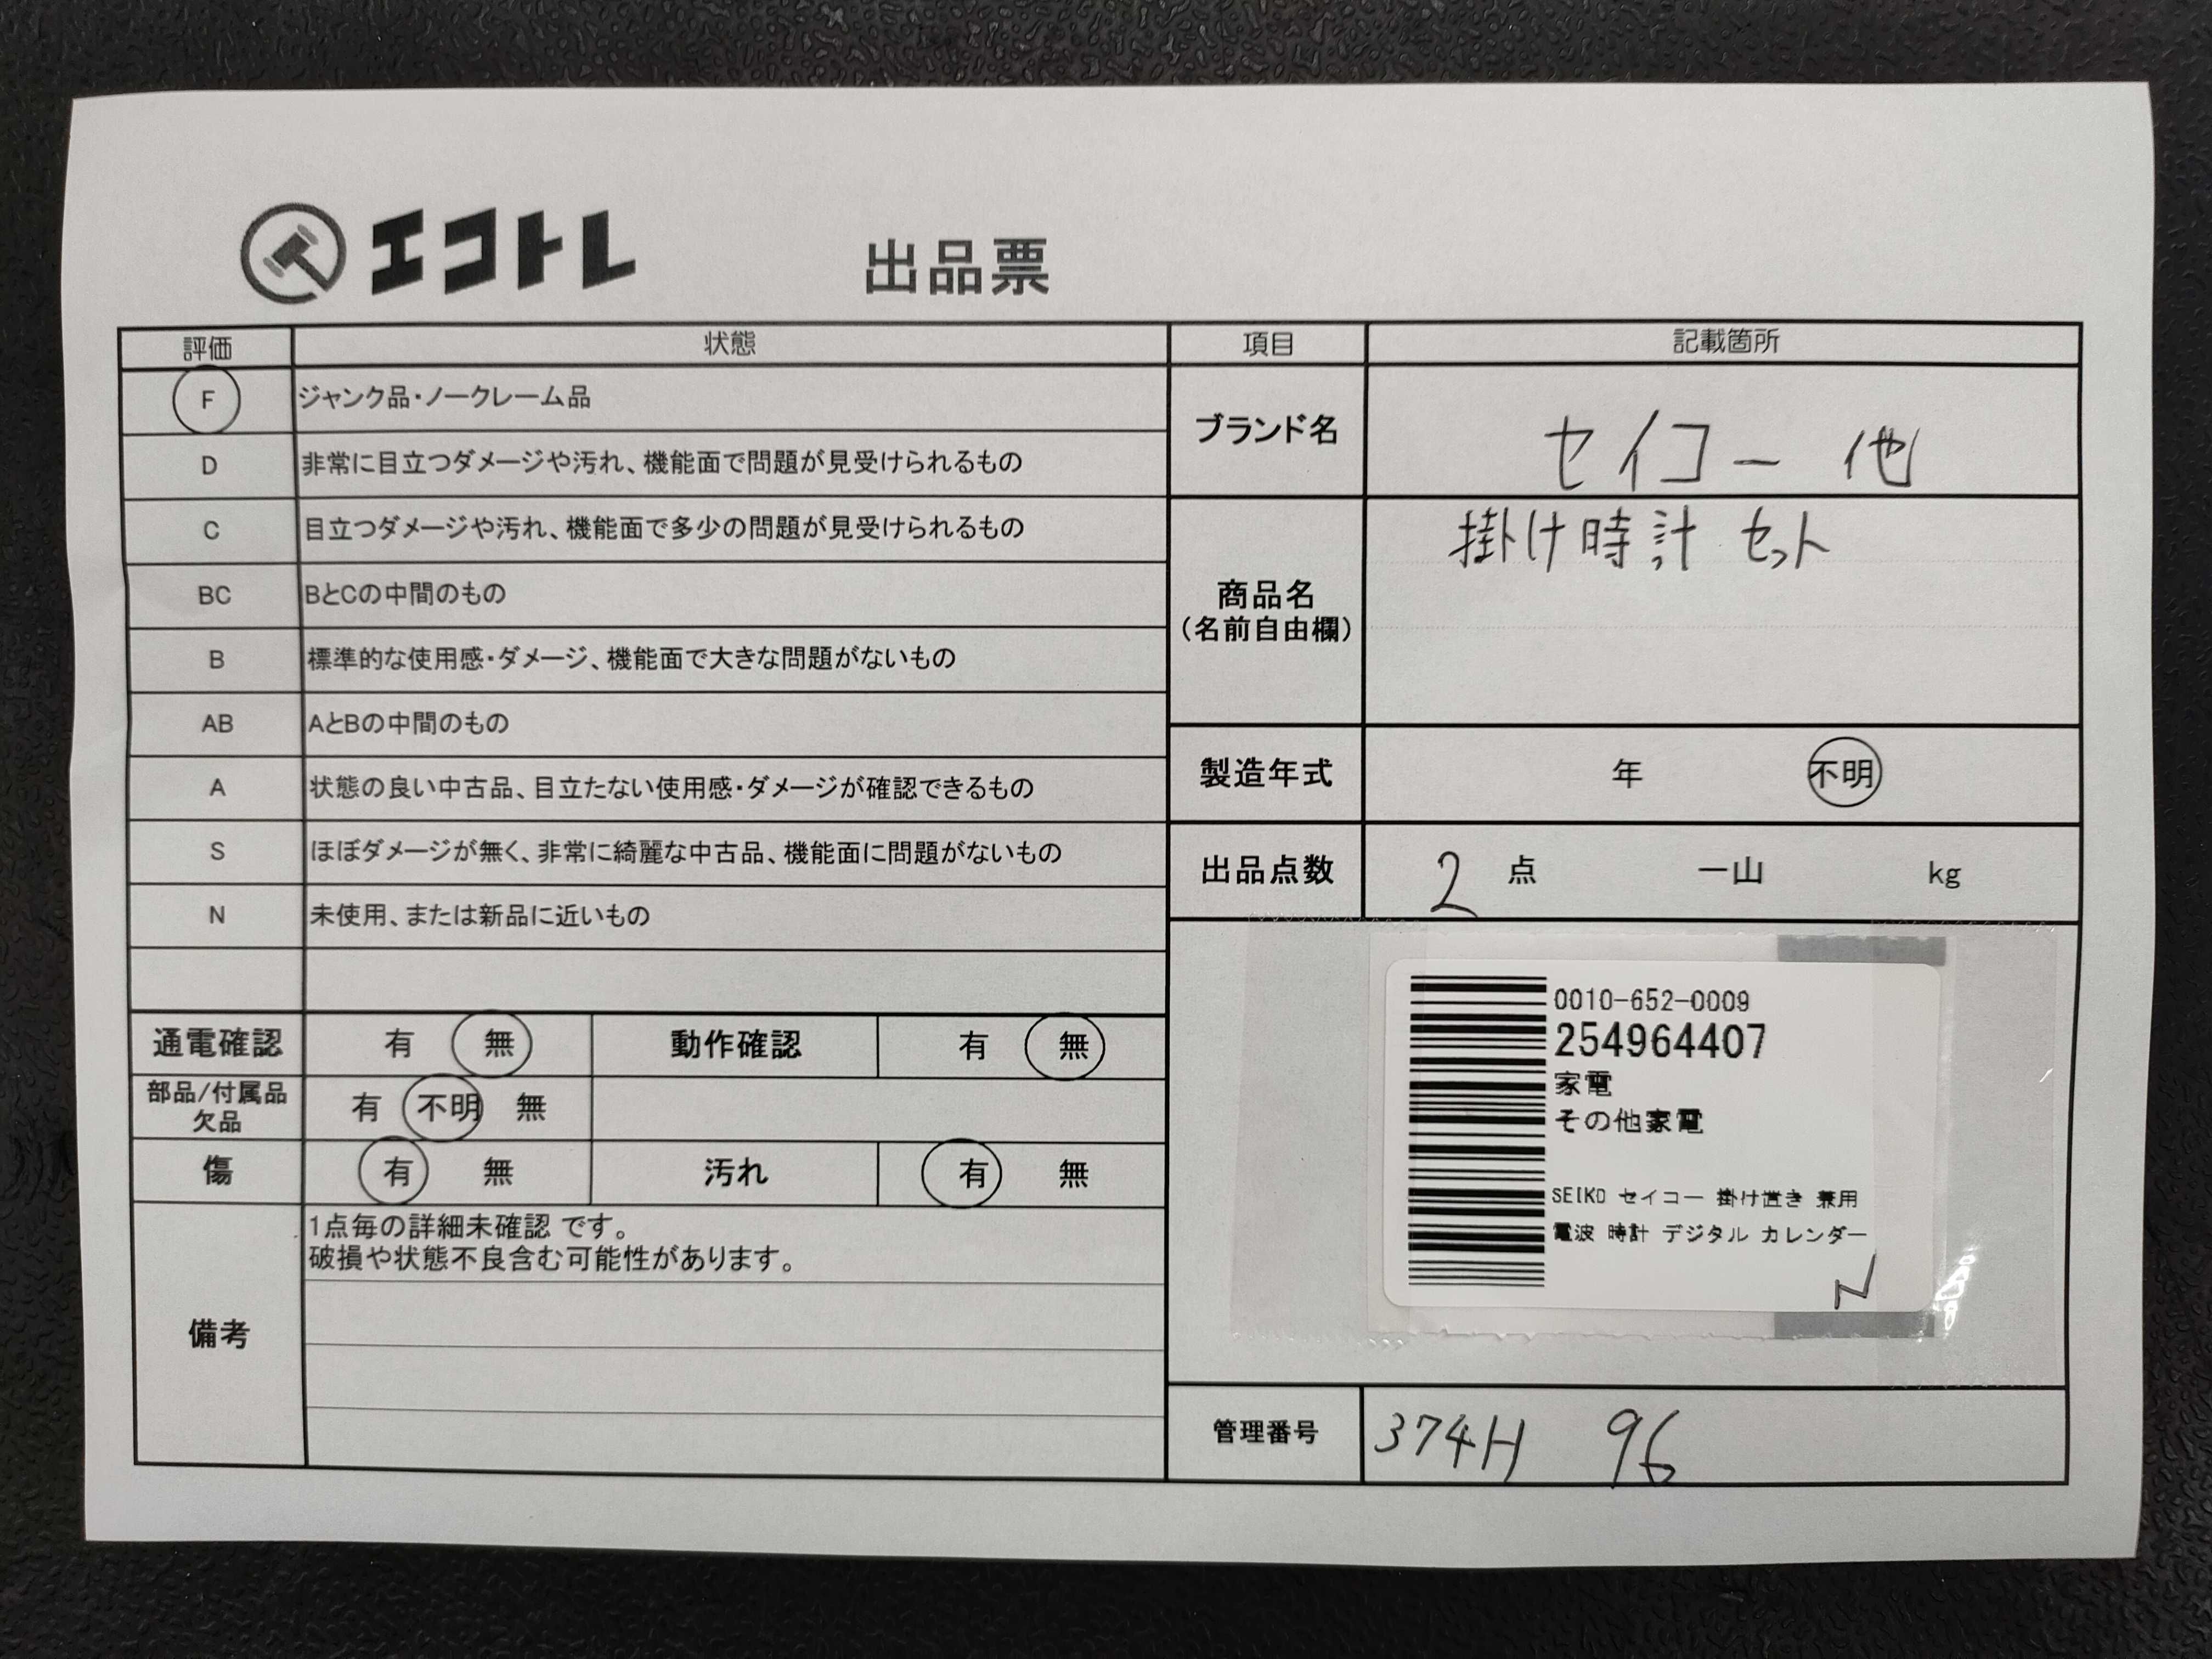 エコトレ 出品票
評価 状態
F ジャンク品・ノークレーム品
D 非常に目立つダメージや汚れ、機能面で問題が見受けられるもの
C 目立つダメージや汚れ、機能面で多少の問題が見受けられるもの
BC BとCの中間のもの
B 標準的な使用感・ダメージ、機能面で大きな問題がないもの
AB AとBの中間のもの
A 状態の良い中古品、目立たない使用感・ダメージが確認できるもの
S ほぼダメージが無く、非常に綺麗な中古品、機能面に問題がないもの
N 未使用、または新品に近いもの
通電確認 有 無 動作確認 有 無
部品/付属品
欠品 有 不明 無
傷 有 無 汚れ 有 無
備考
1点毎の詳細未確認 です。
破損や状態不良含む可能性があります。
項目 記載箇所
ブランド名 セイコー 他
商品名
(名前自由欄)
掛け時計 セット
製造年式 年 不明
出品点数 2 点 一山 kg
0010-652-0009
254964407
家電
その他家電
SEIKO セイコー 掛け置き 兼用
電波 時計 デジタル カレンダー
N
管理番号 374H 96